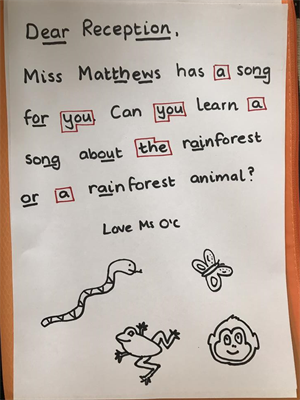 Dear Reception,
Miss Matthews has a song
for you. Can you learn a
song about the rainforest
or a rainforest animal?
Love Ms O'C